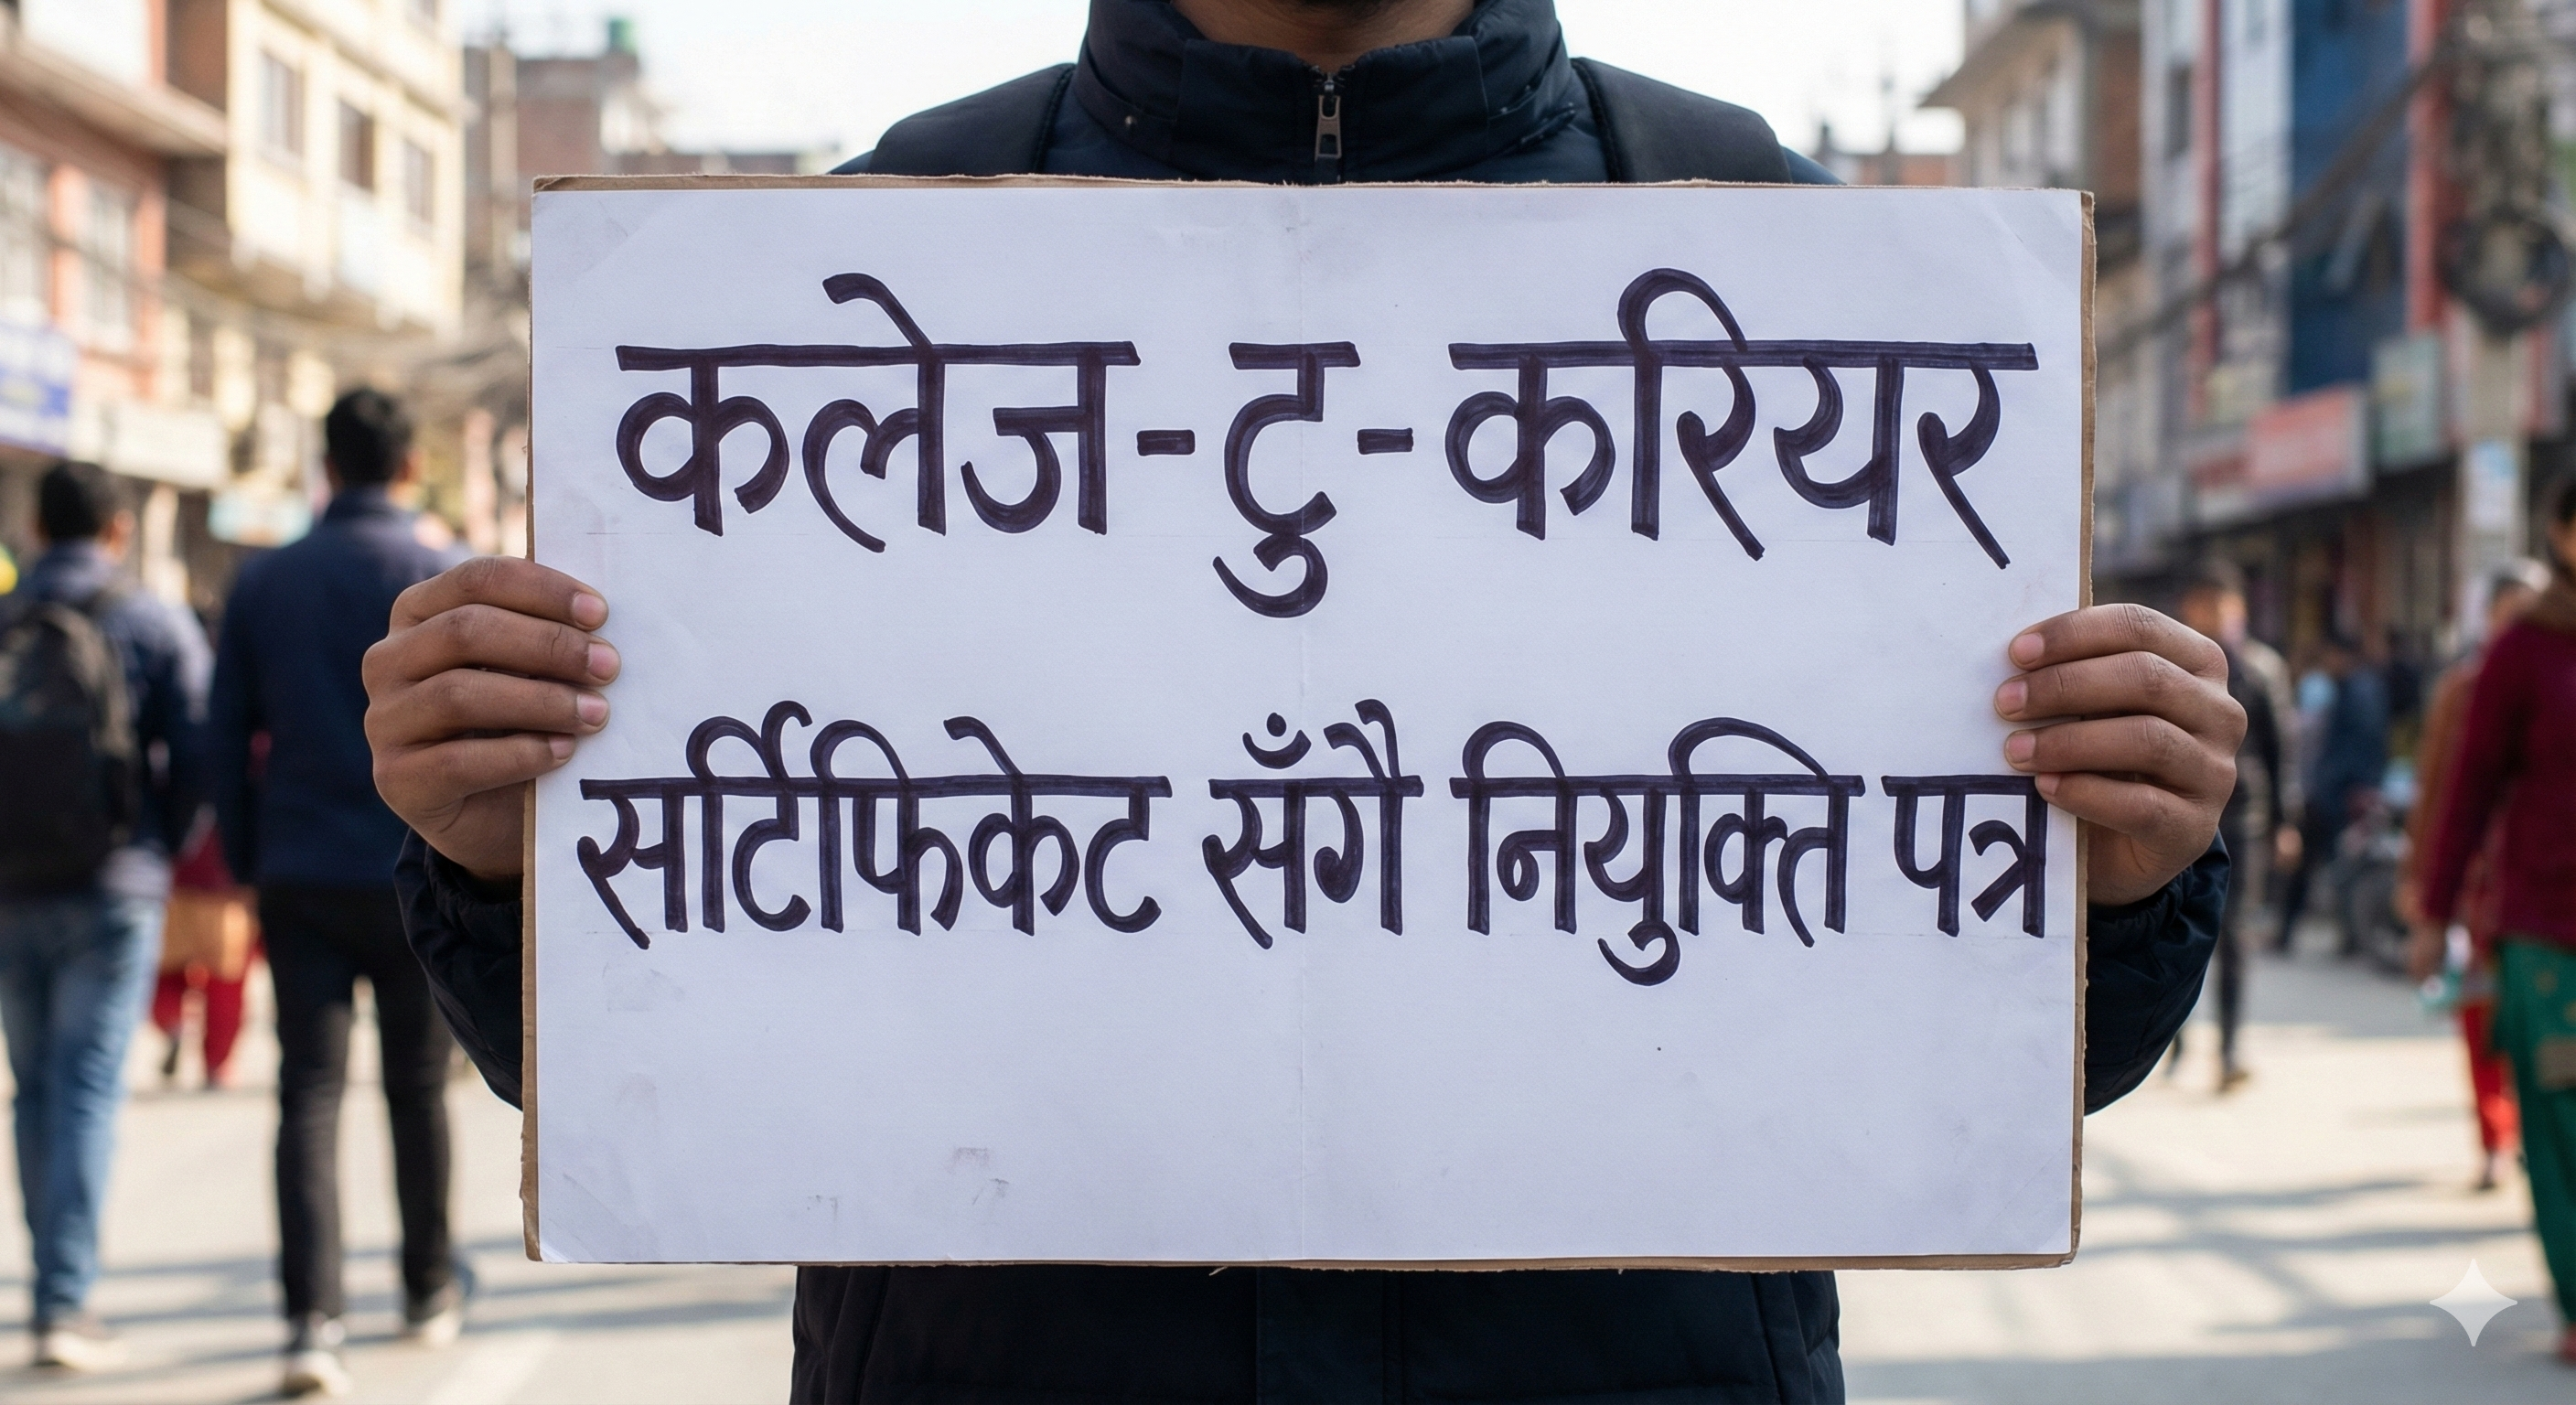 कलेज-टु-करियर
सर्टिफिकेट सँगै नियुक्ति पत्र